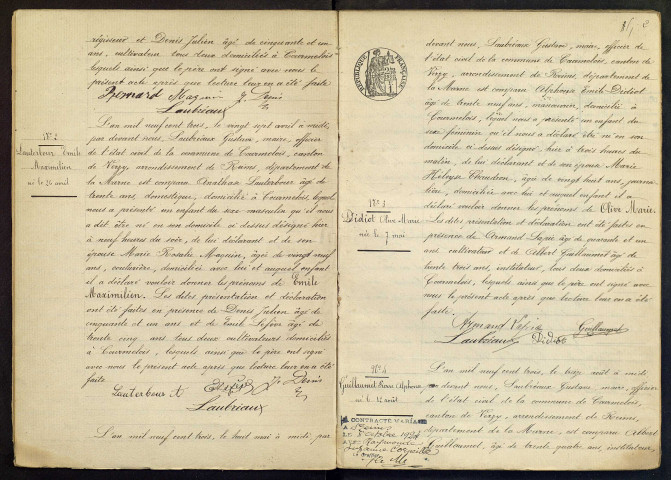 régisseur et Denis Julien âgé de cinquante et un
ans, cultivateur tous deux domiciliés à Courmelois
lesquels ainsi que le père ont signé avec nous le
présent acte après que lecture leur en a été faite
Aymard Maquin J. Denis
Laubriaux
N° 2
Lauterbour Emile
Maximilien
né le 26 avril
L'an mil neuf cent trois, le vingt sept avril à midi,
par devant nous, Laubriaux Gustave, maire, officier
de l'état civil de la commune de Courmelois, canton
de Verzy, arrondissement de Reims, département de
la Marne est comparu Lauterbour âgé de
trente ans, domestique, domicilié à Courmelois lequel
nous a présenté un enfant du sexe masculin qu'il nous
a dit être né en son domicile ci dessus désigné hier
à neuf heures du soir, de lui déclarant et de son
épouse Marie Rosalie Maquin, âgée de vingt neuf
ans, couturière, domiciliée avec lui et auquel enfant
il a déclaré vouloir donner les prénoms de Emile
Maximilien. Les dites présentation et déclaration
ont été faites en présence de Denis Julien âgé de
cinquante et un ans et de Emile âgé de
trente cinq ans tous deux cultivateurs domiciliés
à Courmelois, lesquels ainsi que le père ont signé
avec nous le présent acte après que lecture leur en a été
faite
Lauterbour A J. Denis
Laubriaux
L'an mil neuf cent trois, le huit mai à midi, par
RÉPUBLIQUE FRANÇAISE
devant nous, Laubriaux Gustave, maire, officier de
l'état civil de la commune de Courmelois, canton de
Verzy, arrondissement de Reims, département de
la Marne est comparu Alphonse Emile Didiot
âgé de trente neuf ans, manouvrier, domicilié à
Courmelois, lequel nous a présenté un enfant du
sexe féminin qu'il nous a déclaré être né en son
domicile ci dessus désigné, hier à trois heures du
matin, de lui déclarant et de son épouse Marie
Héloyse, âgée de vingt huit ans,
domiciliée avec lui et auquel enfant il a
déclaré vouloir donner les prénoms de Olive Marie.
Les dites présentation et déclaration ont été faites en
présence de Armand âgé de quarante et un
ans cultivateur et de Albert Guillaumet âgé de
trente trois ans, instituteur, tous deux domiciliés à
Courmelois, lesquels ainsi que le père ont signé avec
nous le présent acte après que lecture leur en a été
faite.
N° 3
Didiot Olive Marie
née le 7 mai
Guillaumet
Laubriaux Didiot
N° 4
Guillaumet Alphonse
né le 12 août
A CONTRACTÉ MARIAGE
L'an mil neuf cent trois, le treize août à midi
devant nous, Laubriaux Gustave maire, officier
de l'état civil de la commune de Courmelois,
canton de Verzy, arrondissement de Reims,
département de la Marne, est comparu Albert
Guillaumet, âgé de trente quatre ans, instituteur,